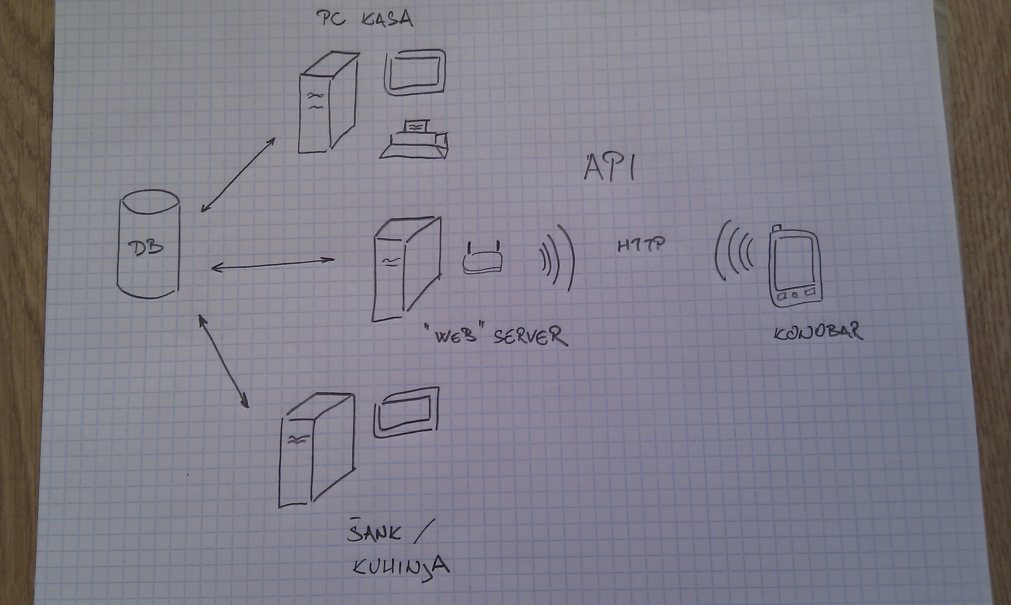 PC KASA
API
DB
HTTP
"WEB" SERVER
KONOBAR
ŠANK /
KUHINJA